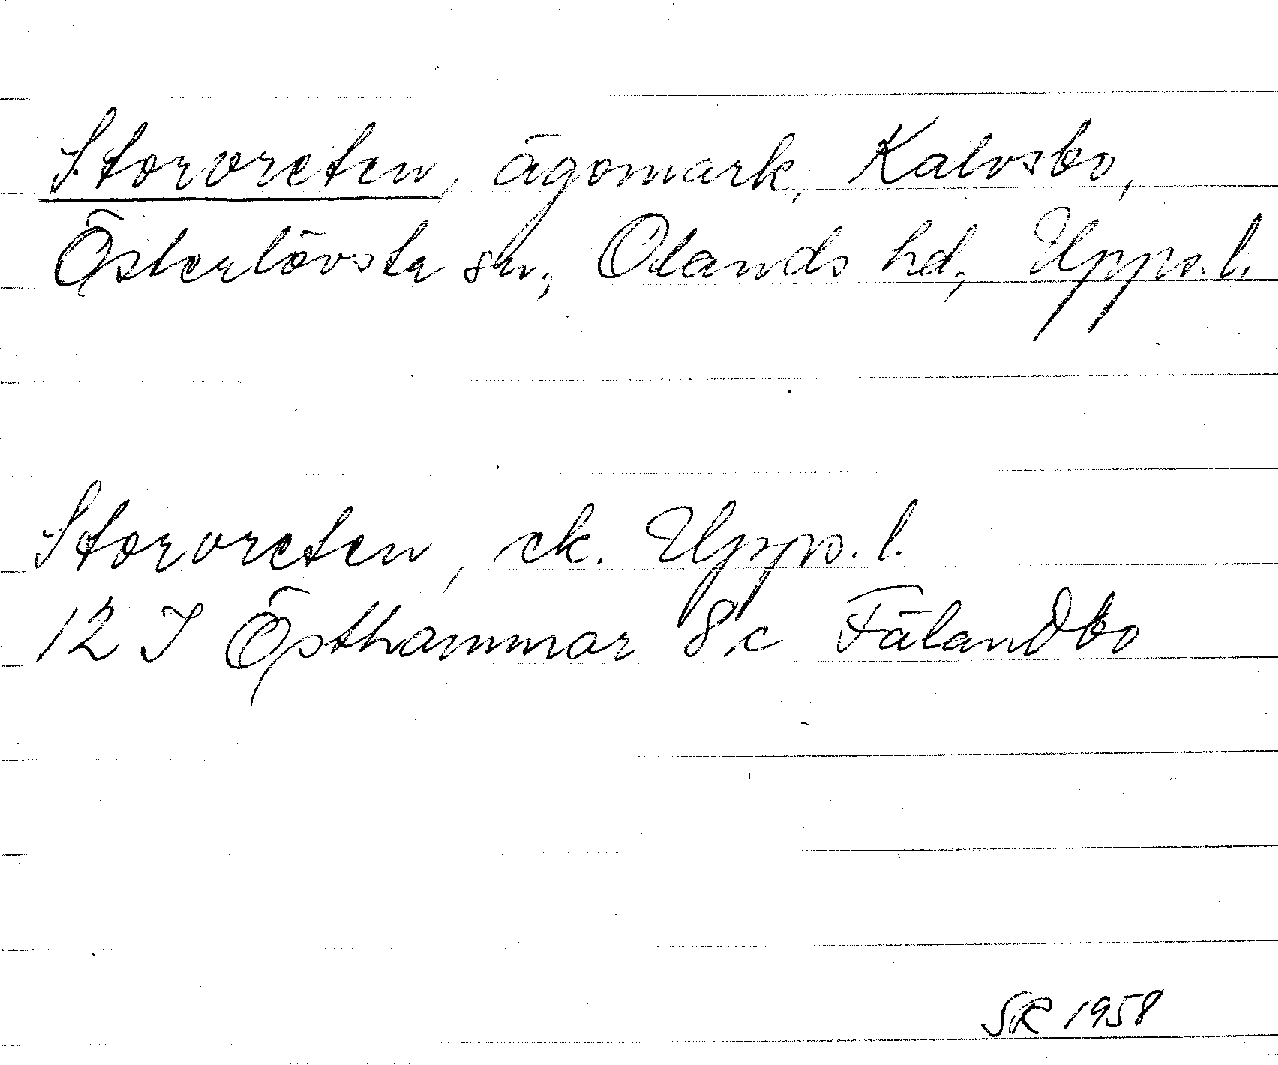 Storvreten, ägomark, Kalvsbo,
Österlövsta sn, Olands hd, Upps.l.
Storvreten, ek. Upps. l.
12 I Östhammar 8 c Fälandbo
SR 1958